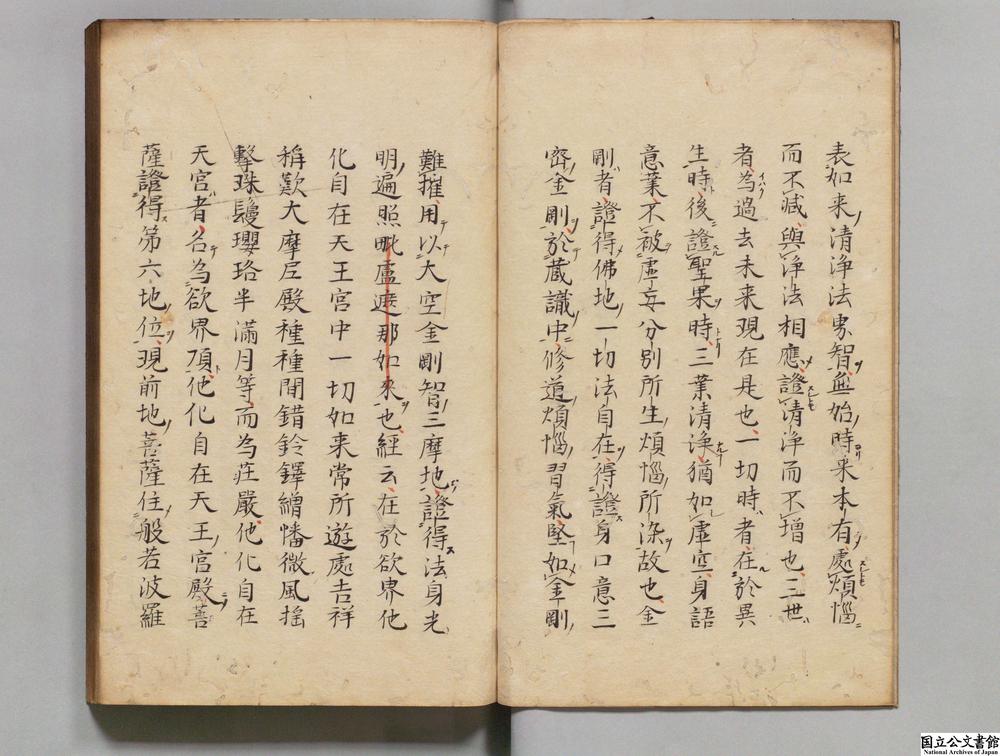 表如来清浄法界智無始時来本有處煩惱
而不減與浄法相應證清浄而不增也三世
者為過去未来現在是也一切時者在於異
生時後證聖果時三業清浄猶如虚空身語
意業不被虚妄分別所生煩惱所染故也金
剛者證得佛地一切法自在得證身口意三
密金剛於蔵識中修道煩惱習氣堅如金剛
難摧用以大空金剛智三摩地證得法身光
明遍照毗盧遮那如来也經云在於欲界他
化自在天王宮中一切如来常所遊處吉祥
稱歎大摩尼殿種種間錯鈴鐸繒幡微風揺
擊珠鬘瓔珞半滿月等而為荘嚴他化自在
天宮者名為欲界頂他化自在天王宮殿菩
薩證得第六地位現前地菩薩住般若波羅
国立公文書館
National Archives of Japan